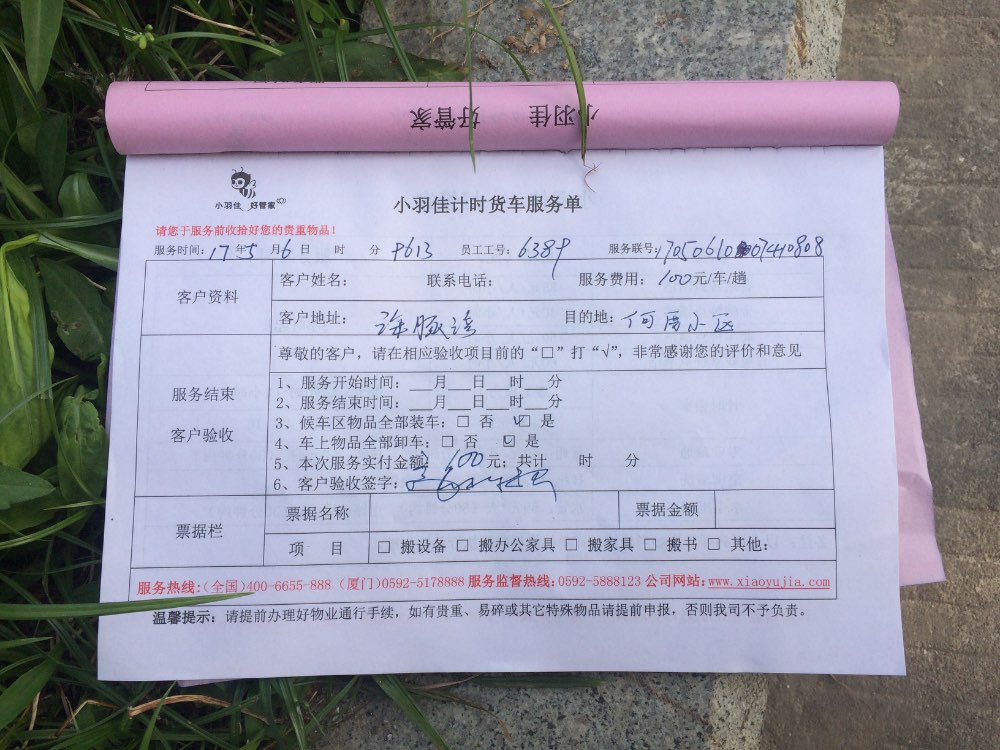 小羽佳 好管家
小羽佳 好管家
小羽佳计时货车服务单
请您于服务前收拾好您的贵重物品！
服务时间：17年5月6日 时 分 员工工号：6389 服务联号：
客户资料
客户姓名： 联系电话： 服务费用：100元/车/趟
客户地址： 目的地：何厝小区
服务结束
客户验收
尊敬的客户，请在相应验收项目前的“□”打“√”，非常感谢您的评价和意见
1、服务开始时间：___月___日___时___分
2、服务结束时间：___月___日___时___分
3、候车区物品全部装车：□ 否 ☑ 是
4、车上物品全部卸车：□ 否 ☑ 是
5、本次服务实付金额：600元；共计 时 分
6、客户验收签字：
票据栏
票据名称 票据金额
项 目 □ 搬设备 □ 搬办公家具 □ 搬家具 □ 搬书 □ 其他：
服务热线：（全国）400-6655-888（厦门）0592-5178888 服务监督热线：0592-5888123 公司网站：www.xiaoyujia.com
温馨提示：请提前办理好物业通行手续，如有贵重、易碎或其它特殊物品请提前申报，否则我司不予负责。